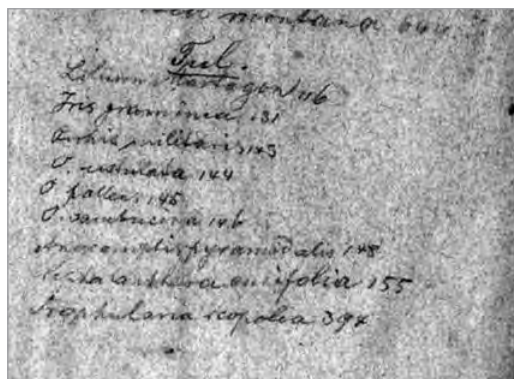 montana 644
Jul.
Lilium Martagon 116
Iris graminea 131
Orchis militaris 143
O. ustulata 144
O. pallens 145
O. sambucina 146
Anacamptis pyramidalis 148
ensifolia 155
Scrophularia scopolia 394